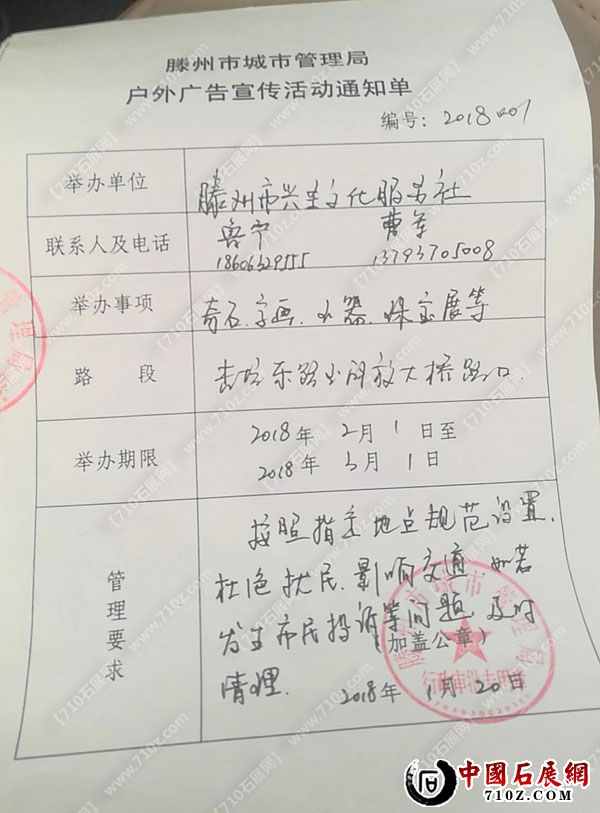 滕州市城市管理局
户外广告宣传活动通知单
编号：2018001
举办单位
滕州市兴生文化服务社
联系人及电话
鲁宁 曹军
18606329555 13793705008
举办事项
奇石、字画、木器、珠宝展等
路 段
东路与解放大桥路口
举办期限
2018年2月1日至
2018年3月1日
管理要求
按照指定地点规范设置，
杜绝扰民、影响交通，如若
发生市民投诉等问题，及时
清理.
（加盖公章）
2018年1月20日
中國石展網
710z.com
【710石展网】
www.710z.com